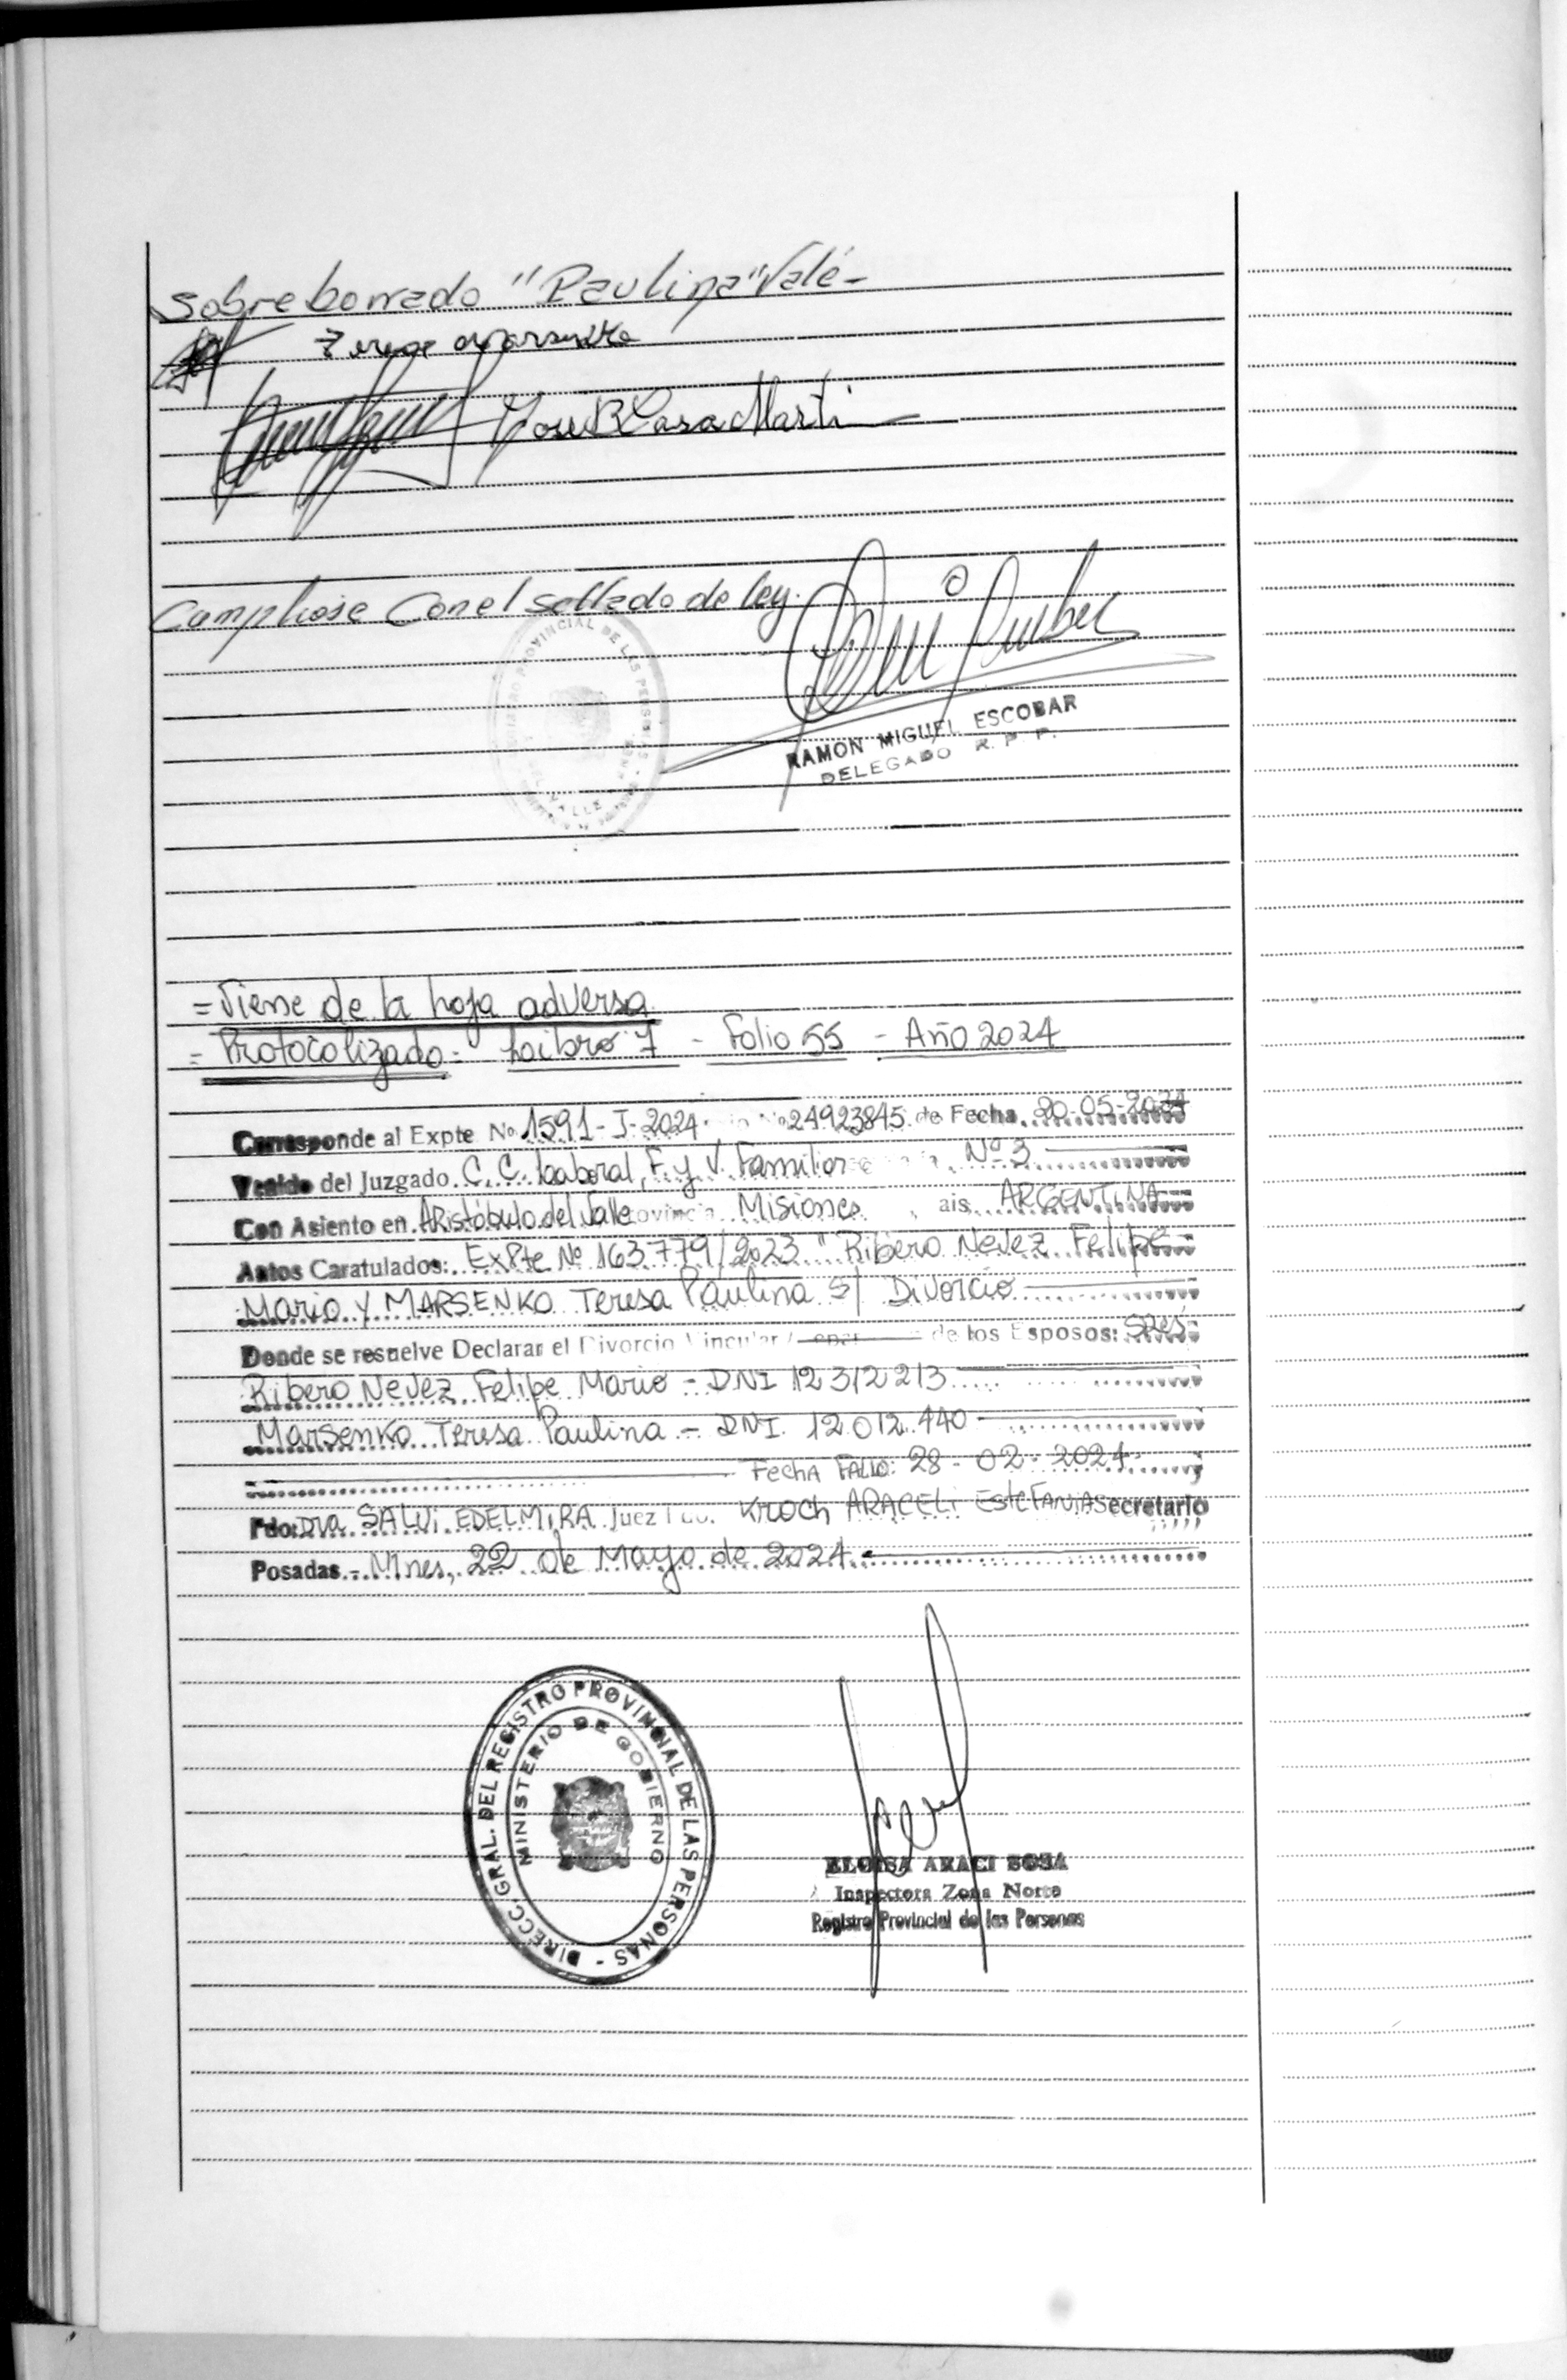 Sobre borrado "Paulina" Vale-
José R Casa Marti
Cumpliose con el sellado de ley.
REGISTRO PROVINCIAL DE LAS PERSONAS
DEL VALLE
RAMON MIGUEL ESCOBAR
DELEGADO R. P. P.
= Viene de la hoja adversa
= Protocolizado - Libro 7 - Folio 55 - Año 2024
Corresponde al Expte Nº 1591-J-2024 24923845 de Fecha 20-05-2024
Venido del Juzgado C. C. Laboral, F. y V. Familiar Nº 3
Con Asiento en Aristóbulo del Valle Provincia Misiones, ais ARGENTINA
Autos Caratulados: ExPte Nº 163.779/2023 "Ribero Nevez Felipe
Mario y MARSENKO Teresa Paulina S/ Divorcio
Donde se resuelve Declarar el Divorcio Vincular / de los Esposos: Sres
Ribero Nevez Felipe Mario - DNI 12312213
Marsenko Teresa Paulina - DNI 12.012.440
Fecha Fallo: 28-02-2024
Fdo: Dra SALVI EDELMIRA Juez Fdo. Kroch ARACELI EsteFANIA Secretario
Posadas - Mnes, 22 de Mayo de 2024
DIRECC. GRAL. DEL REGISTRO PROVINCIAL DE LAS PERSONAS -
MINISTERIO DE GOBIERNO
ELOISA ARACI SOSA
Inspectora Zona Norte
Registro Provincial de las Personas